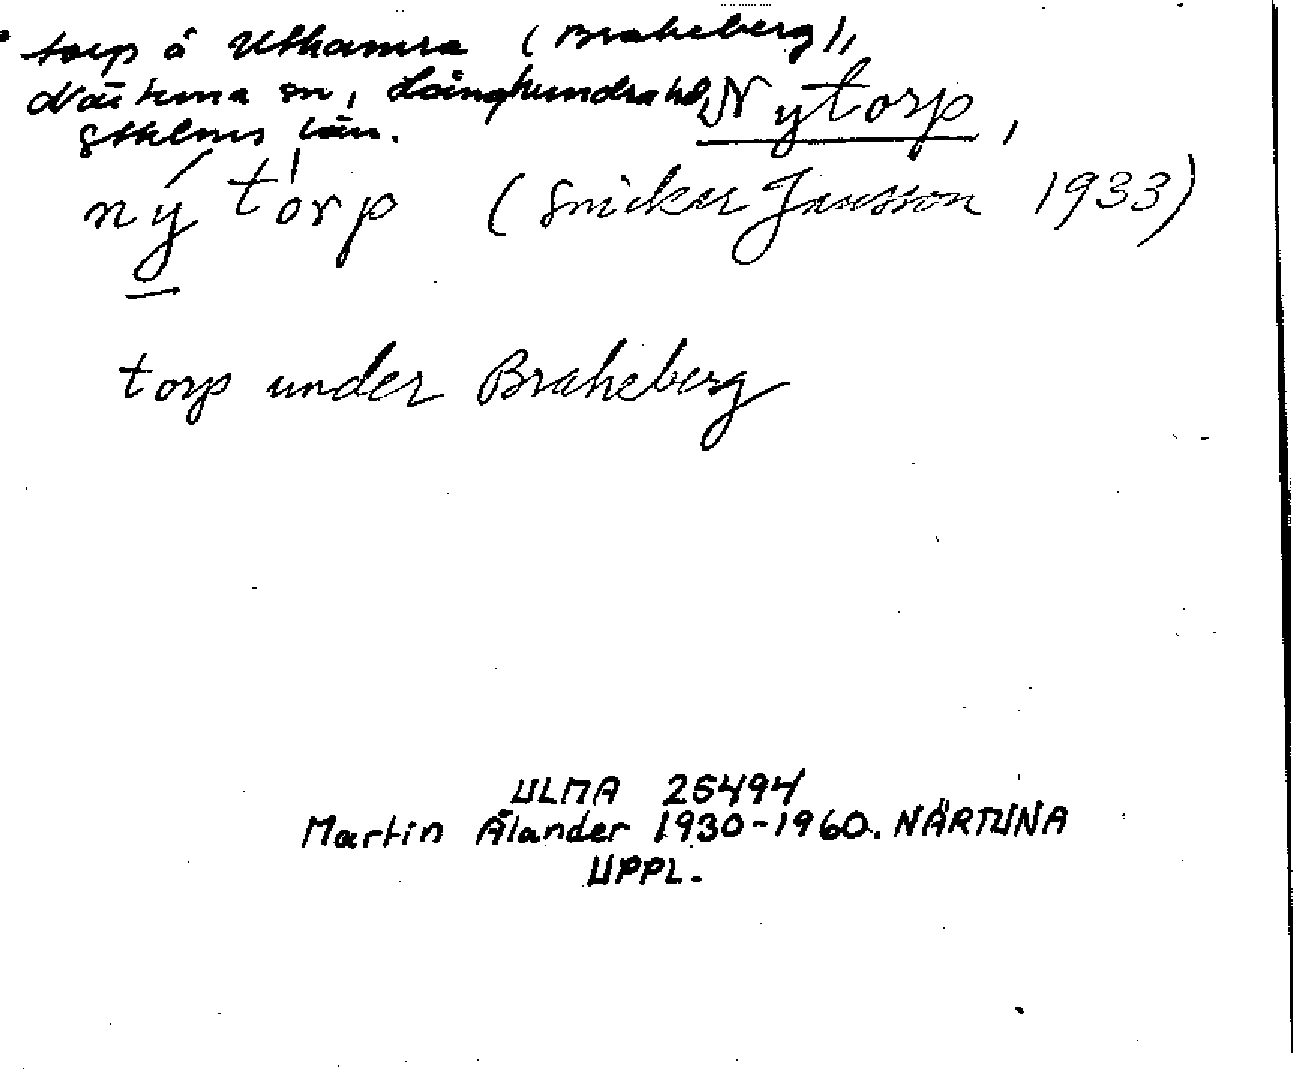 torp å Uthamra (Braheberg),
Närtuna sn, Långhundra hd,
Sthlms län.
Nytorp,
ný tórp (Snickar Jansson 1933)
torp under Braheberg
ULMA 25494
Martin Ålander 1930-1960. NÄRTUNA
UPPL.